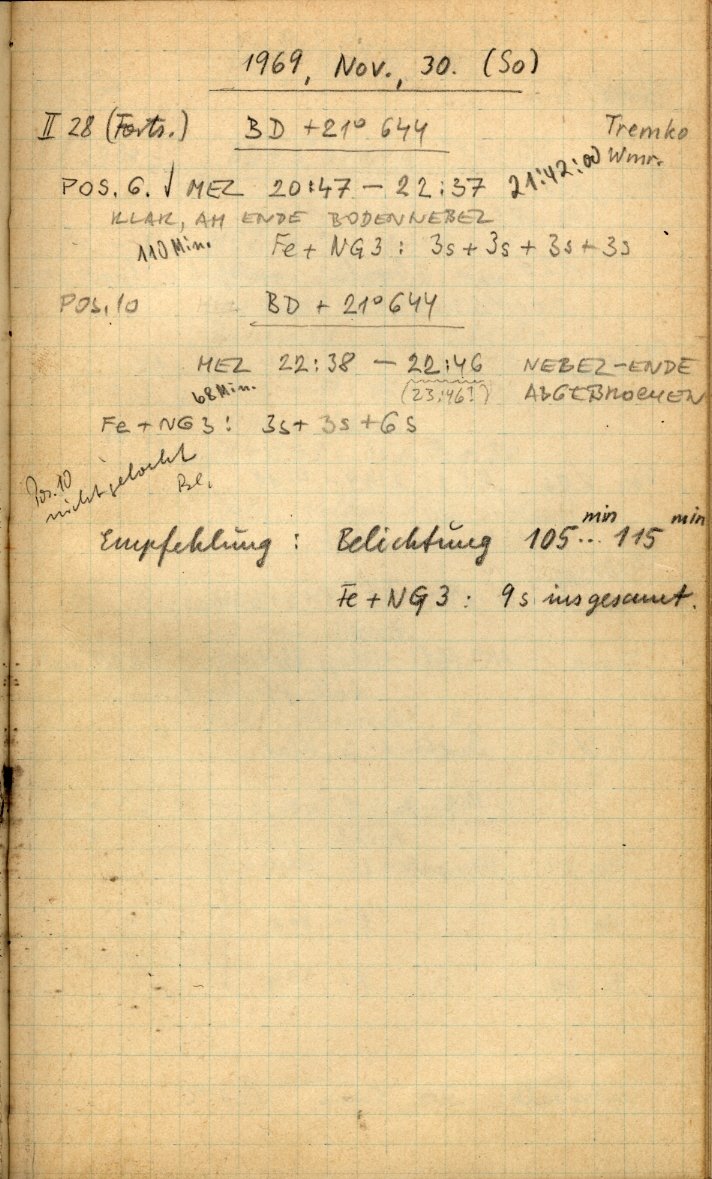 1969, Nov., 30. (So)
II 28 (Forts.) BD +21° 644 Tremko
Wmr.
POS. 6. √ MEZ 20:47 – 22:37 21:42:00
KLAR, AM ENDE BODENNEBEL
110 Min. Fe + NG3 : 3s + 3s + 3s + 3s
POS. 10 BD + 21° 644
MEZ 22:38 – 22:46 NEBEL-ENDE
68 Min. (23:46!) ABGEBROCHEN
Fe + NG3 : 3s + 3s + 6s
Pos. 10
nicht gelocht
Bl.
Empfehlung : Belichtung 105 min ... 115 min
Fe + NG3 : 9s insgesamt.